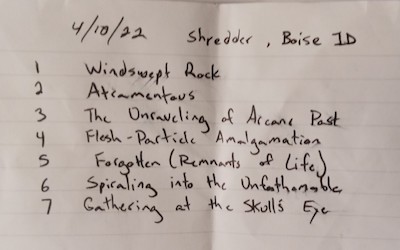 4/10/22 Shredder, Boise ID
1 Windswept Rock
2 Atramentous
3 The Unraveling of Arcane Past
4 Flesh-Particle Amalgamation
5 Forgotten (Remnants of Life)
6 Spiraling into the Unfathomable
7 Gathering at the Skull's Eye